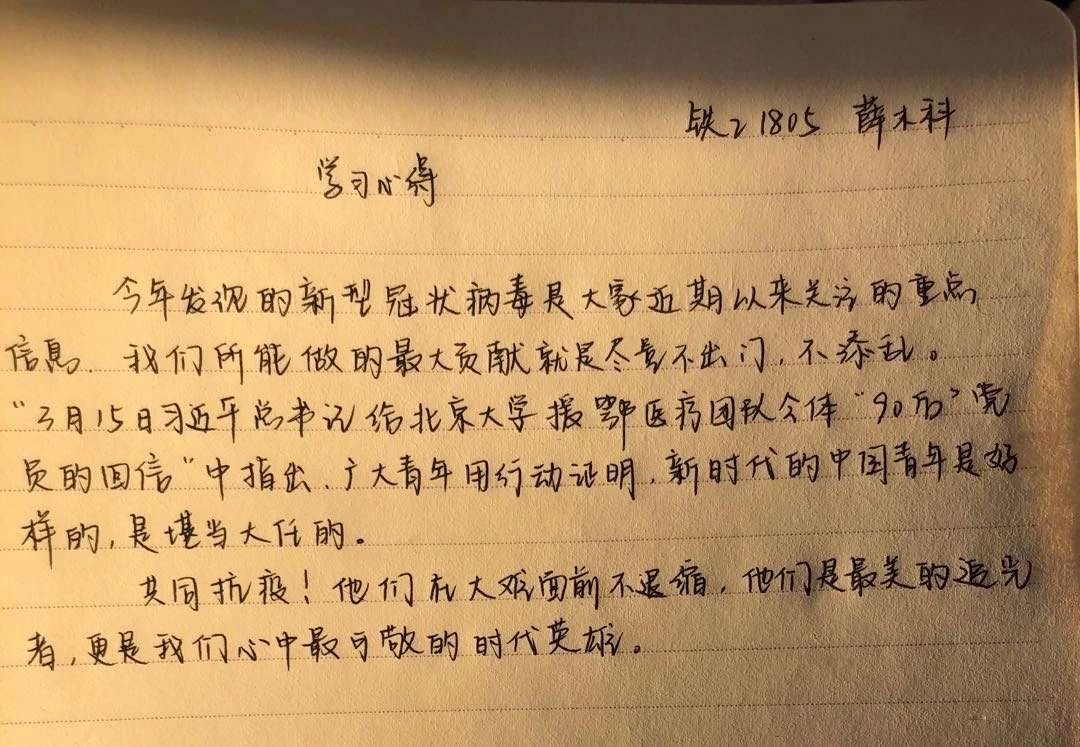 铁2 1805 薛木科
学习心得
今年发现的新型冠状病毒是大家近期以来关注的重点
信息。我们所能做的最大贡献就是尽量不出门，不添乱。
“3月15日习近平总书记给北京大学援鄂医疗团队全体“90后”党
员的回信”中指出、广大青年用行动证明，新时代的中国青年是好
样的，是堪当大任的。
共同抗疫！他们在大难面前不退缩，他们是最美的逆光
者，更是我们心中最可敬的时代英雄。